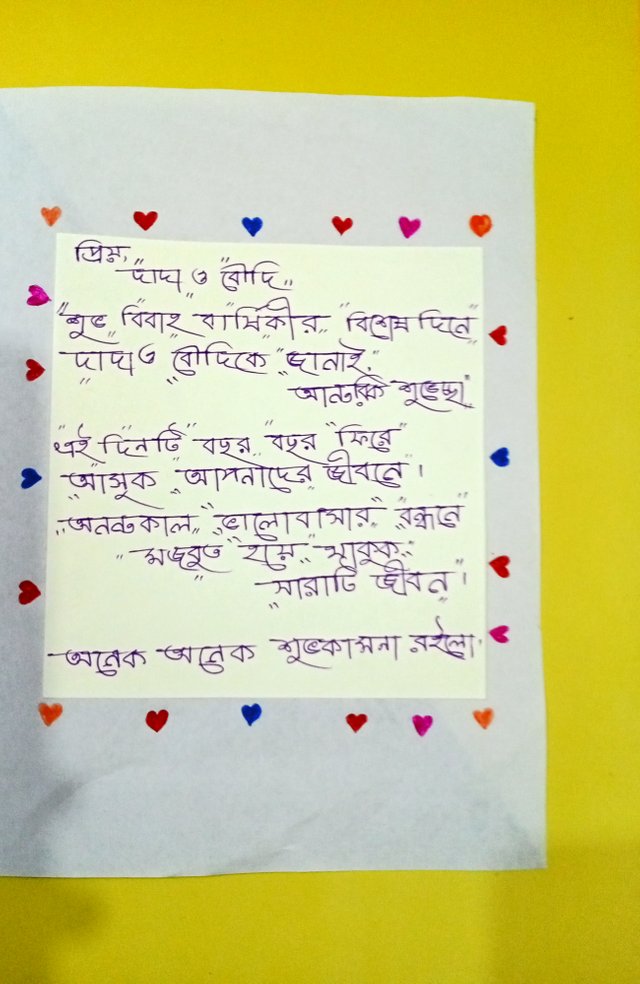 প্রিয়,
"দাদা" ও "বৌদি"
"শুভ" "বিবাহ" বার্ষিকীর" "বিশেষ দিনে"
"দাদা ও "বৌদিকে" "জানাই"
আন্তরিক শুভেচ্ছা"
"এই দিনটি" বছর" "বছর "ফিরে"
"আসুক" "আপনাদের" জীবনে"।
"অনন্তকাল" "ভালোবাসার" "বন্ধনে"
"মজবুত" হয়ে" থাকুক"
"সারাটি জীবন"।
অনেক অনেক শুভকামনা রইলো।